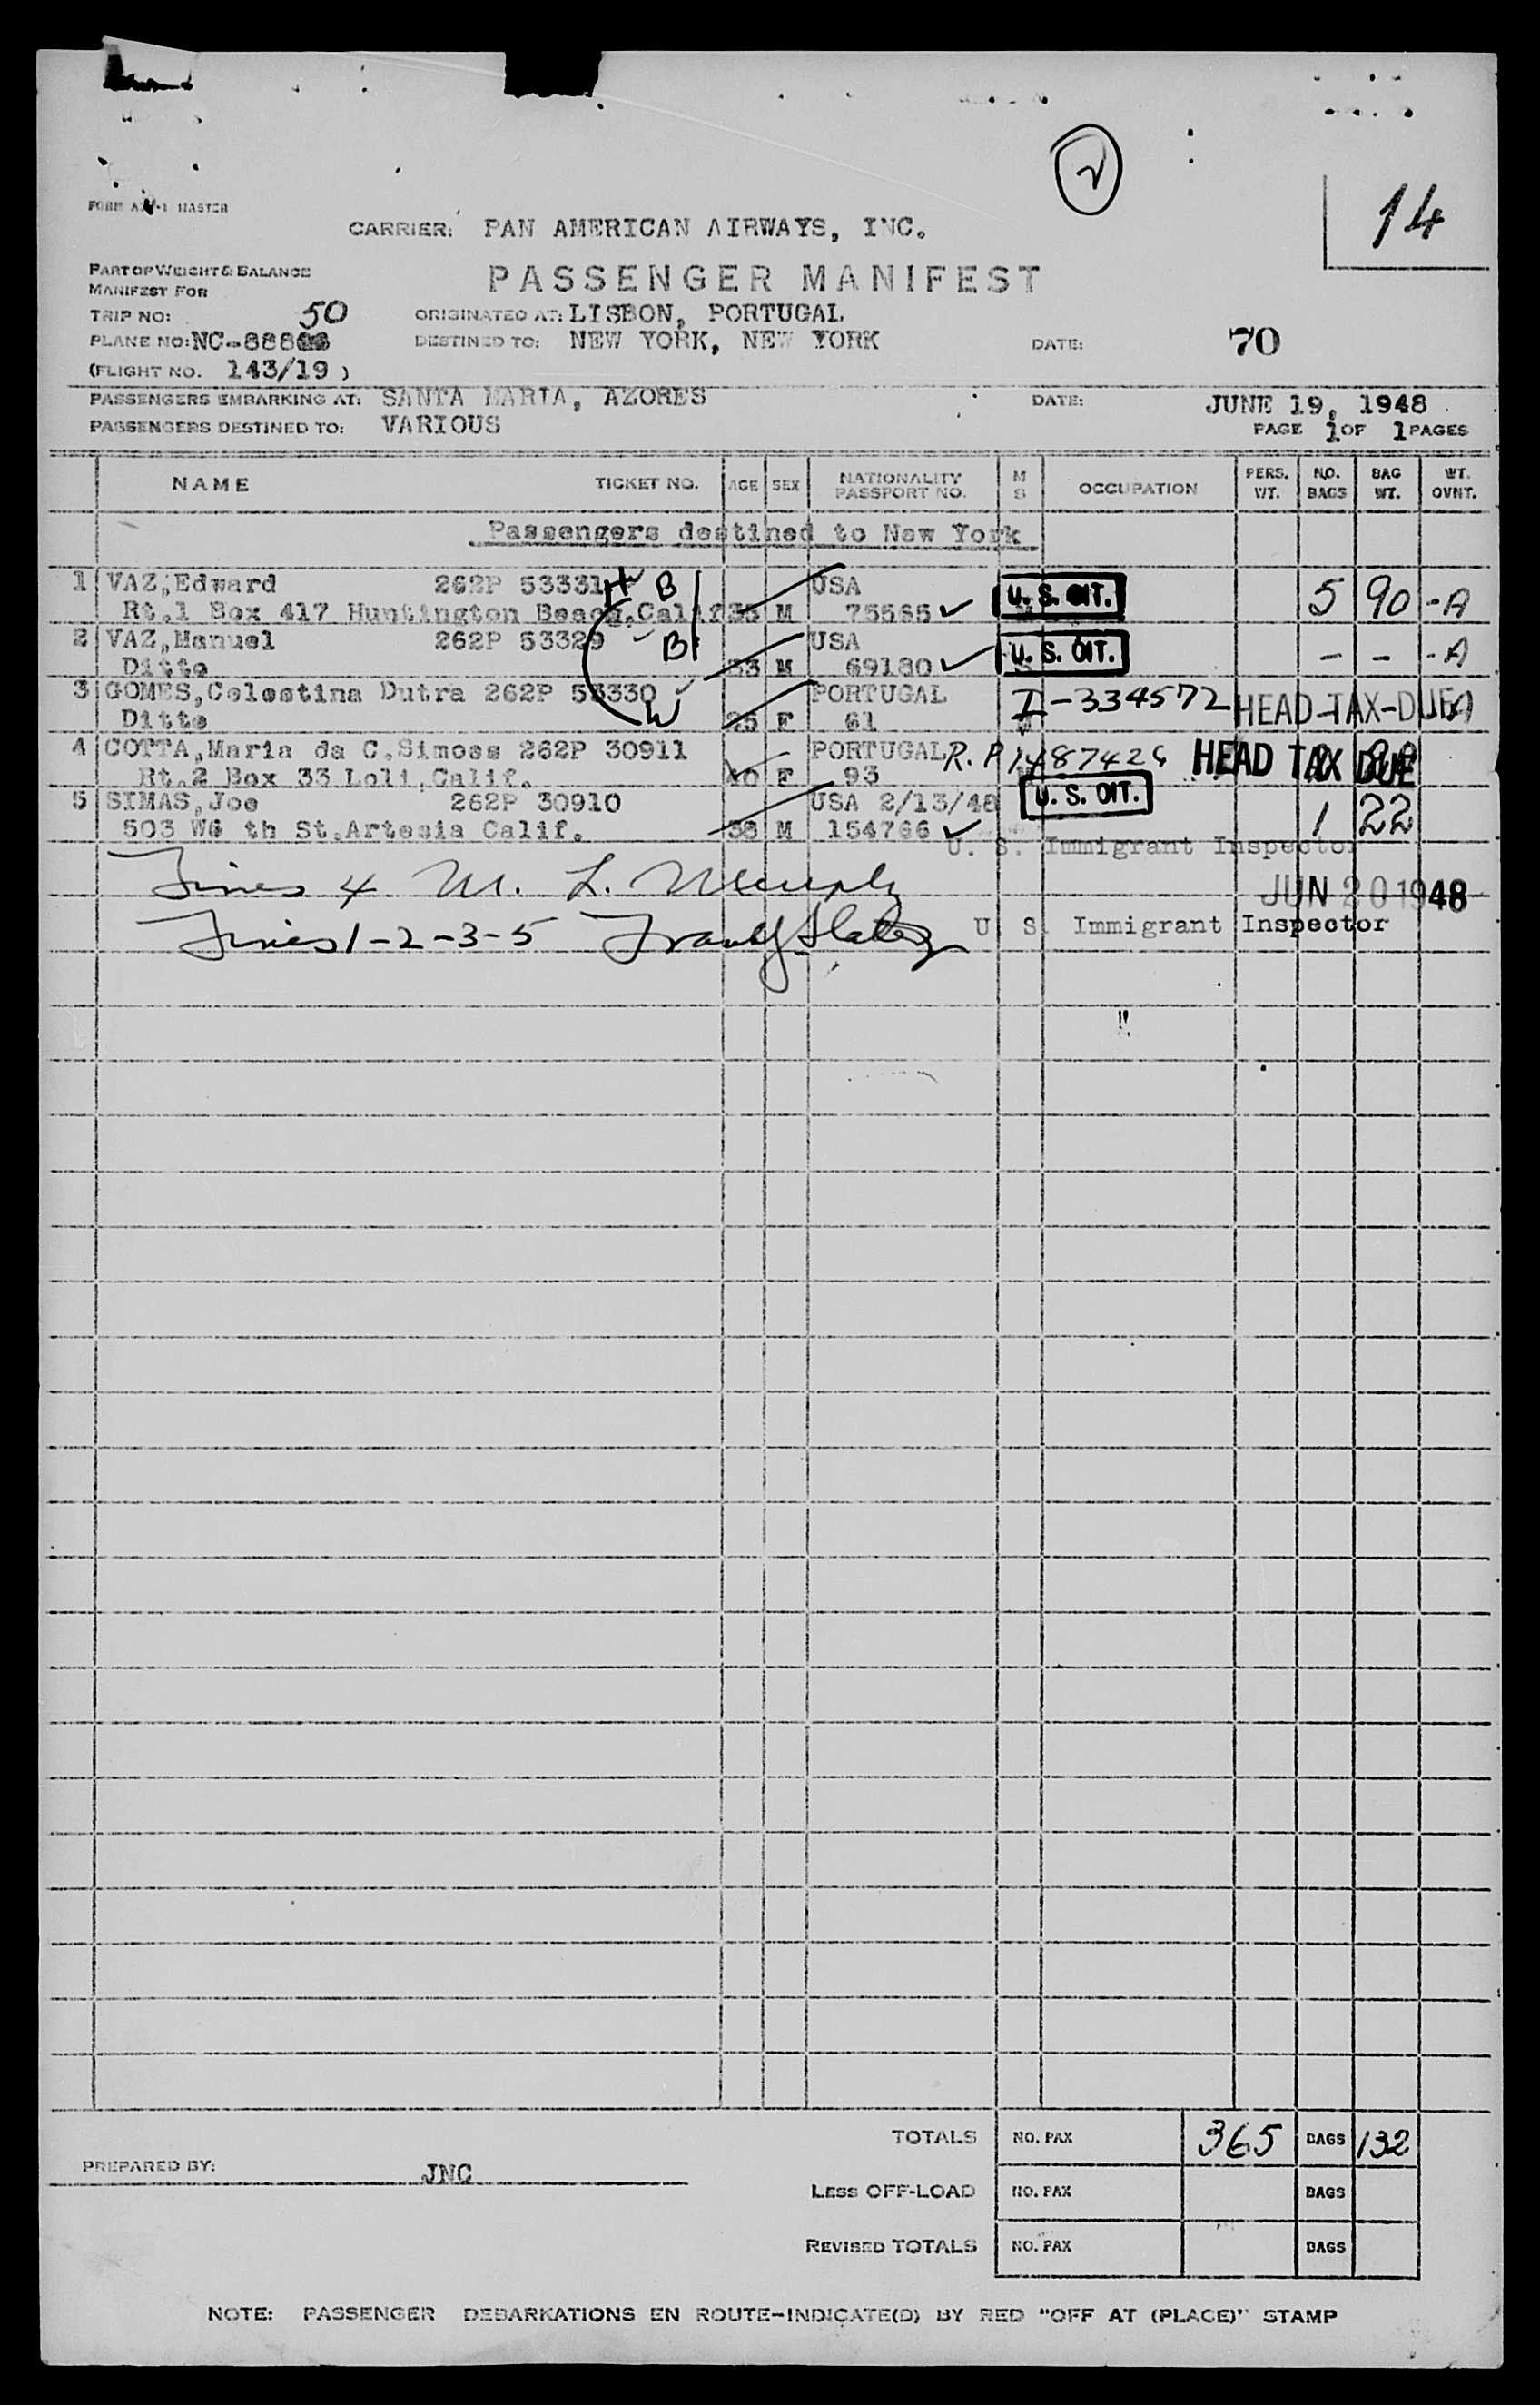 2
14
FORM
MASTER
CARRIER: PAN AMERICAN AIRWAYS, INC.
PART OF WEIGHT & BALANCE
MANIFEST FOR
PASSENGER MANIFEST
TRIP NO: 50
ORIGINATED AT: LISBON, PORTUGAL
PLANE NO: NC-888
DESTINED TO: NEW YORK, NEW YORK
DATE: 70
(FLIGHT NO. 143/19)
PASSENGERS EMBARKING AT: SANTA MARIA, AZORES
DATE: JUNE 19, 1948
PASSENGERS DESTINED TO: VARIOUS
PAGE 1 OF 1 PAGES
NAME TICKET NO. AGE SEX NATIONALITY PASSPORT NO. M S OCCUPATION PERS. WT. NO. BAGS BAG WT. WT. OVNT.
Passengers destined to New York
1 VAZ,Edward 262P 53331 B USA U. S. CIT. 5 90 -A
Rt.1 Box 417 Huntington Beach,Calif M 75565
2 VAZ,Manuel 262P 53329 B USA U. S. CIT. - - -A
Ditto 33 M 69180
3 GOMES,Celestina Dutra 262P 53330 PORTUGAL I-334572 HEAD-TAX-DUE A
Ditto 25 F 61
4 COTTA,Maria da C.Simoes 262P 30911 PORTUGAL R.P. HEAD TAX DUE
Rt.2 Box 33 Loli,Calif. 40 F 93
5 SIMAS,Joe 262P 30910 USA 2/13/48 U. S. CIT. 1 22
503 W6 th St.Artesia Calif. 38 M 154766
U. S. Immigrant Inspector
4 M. L.
JUN 20 1948
1-2-3-5
U. S. Immigrant Inspector
TOTALS NO. PAX 365 BAGS 132
PREPARED BY: JNC
LESS OFF-LOAD NO. PAX BAGS
REVISED TOTALS NO. PAX BAGS
NOTE: PASSENGER DEBARKATIONS EN ROUTE-INDICATE(D) BY RED "OFF AT (PLACE)" STAMP